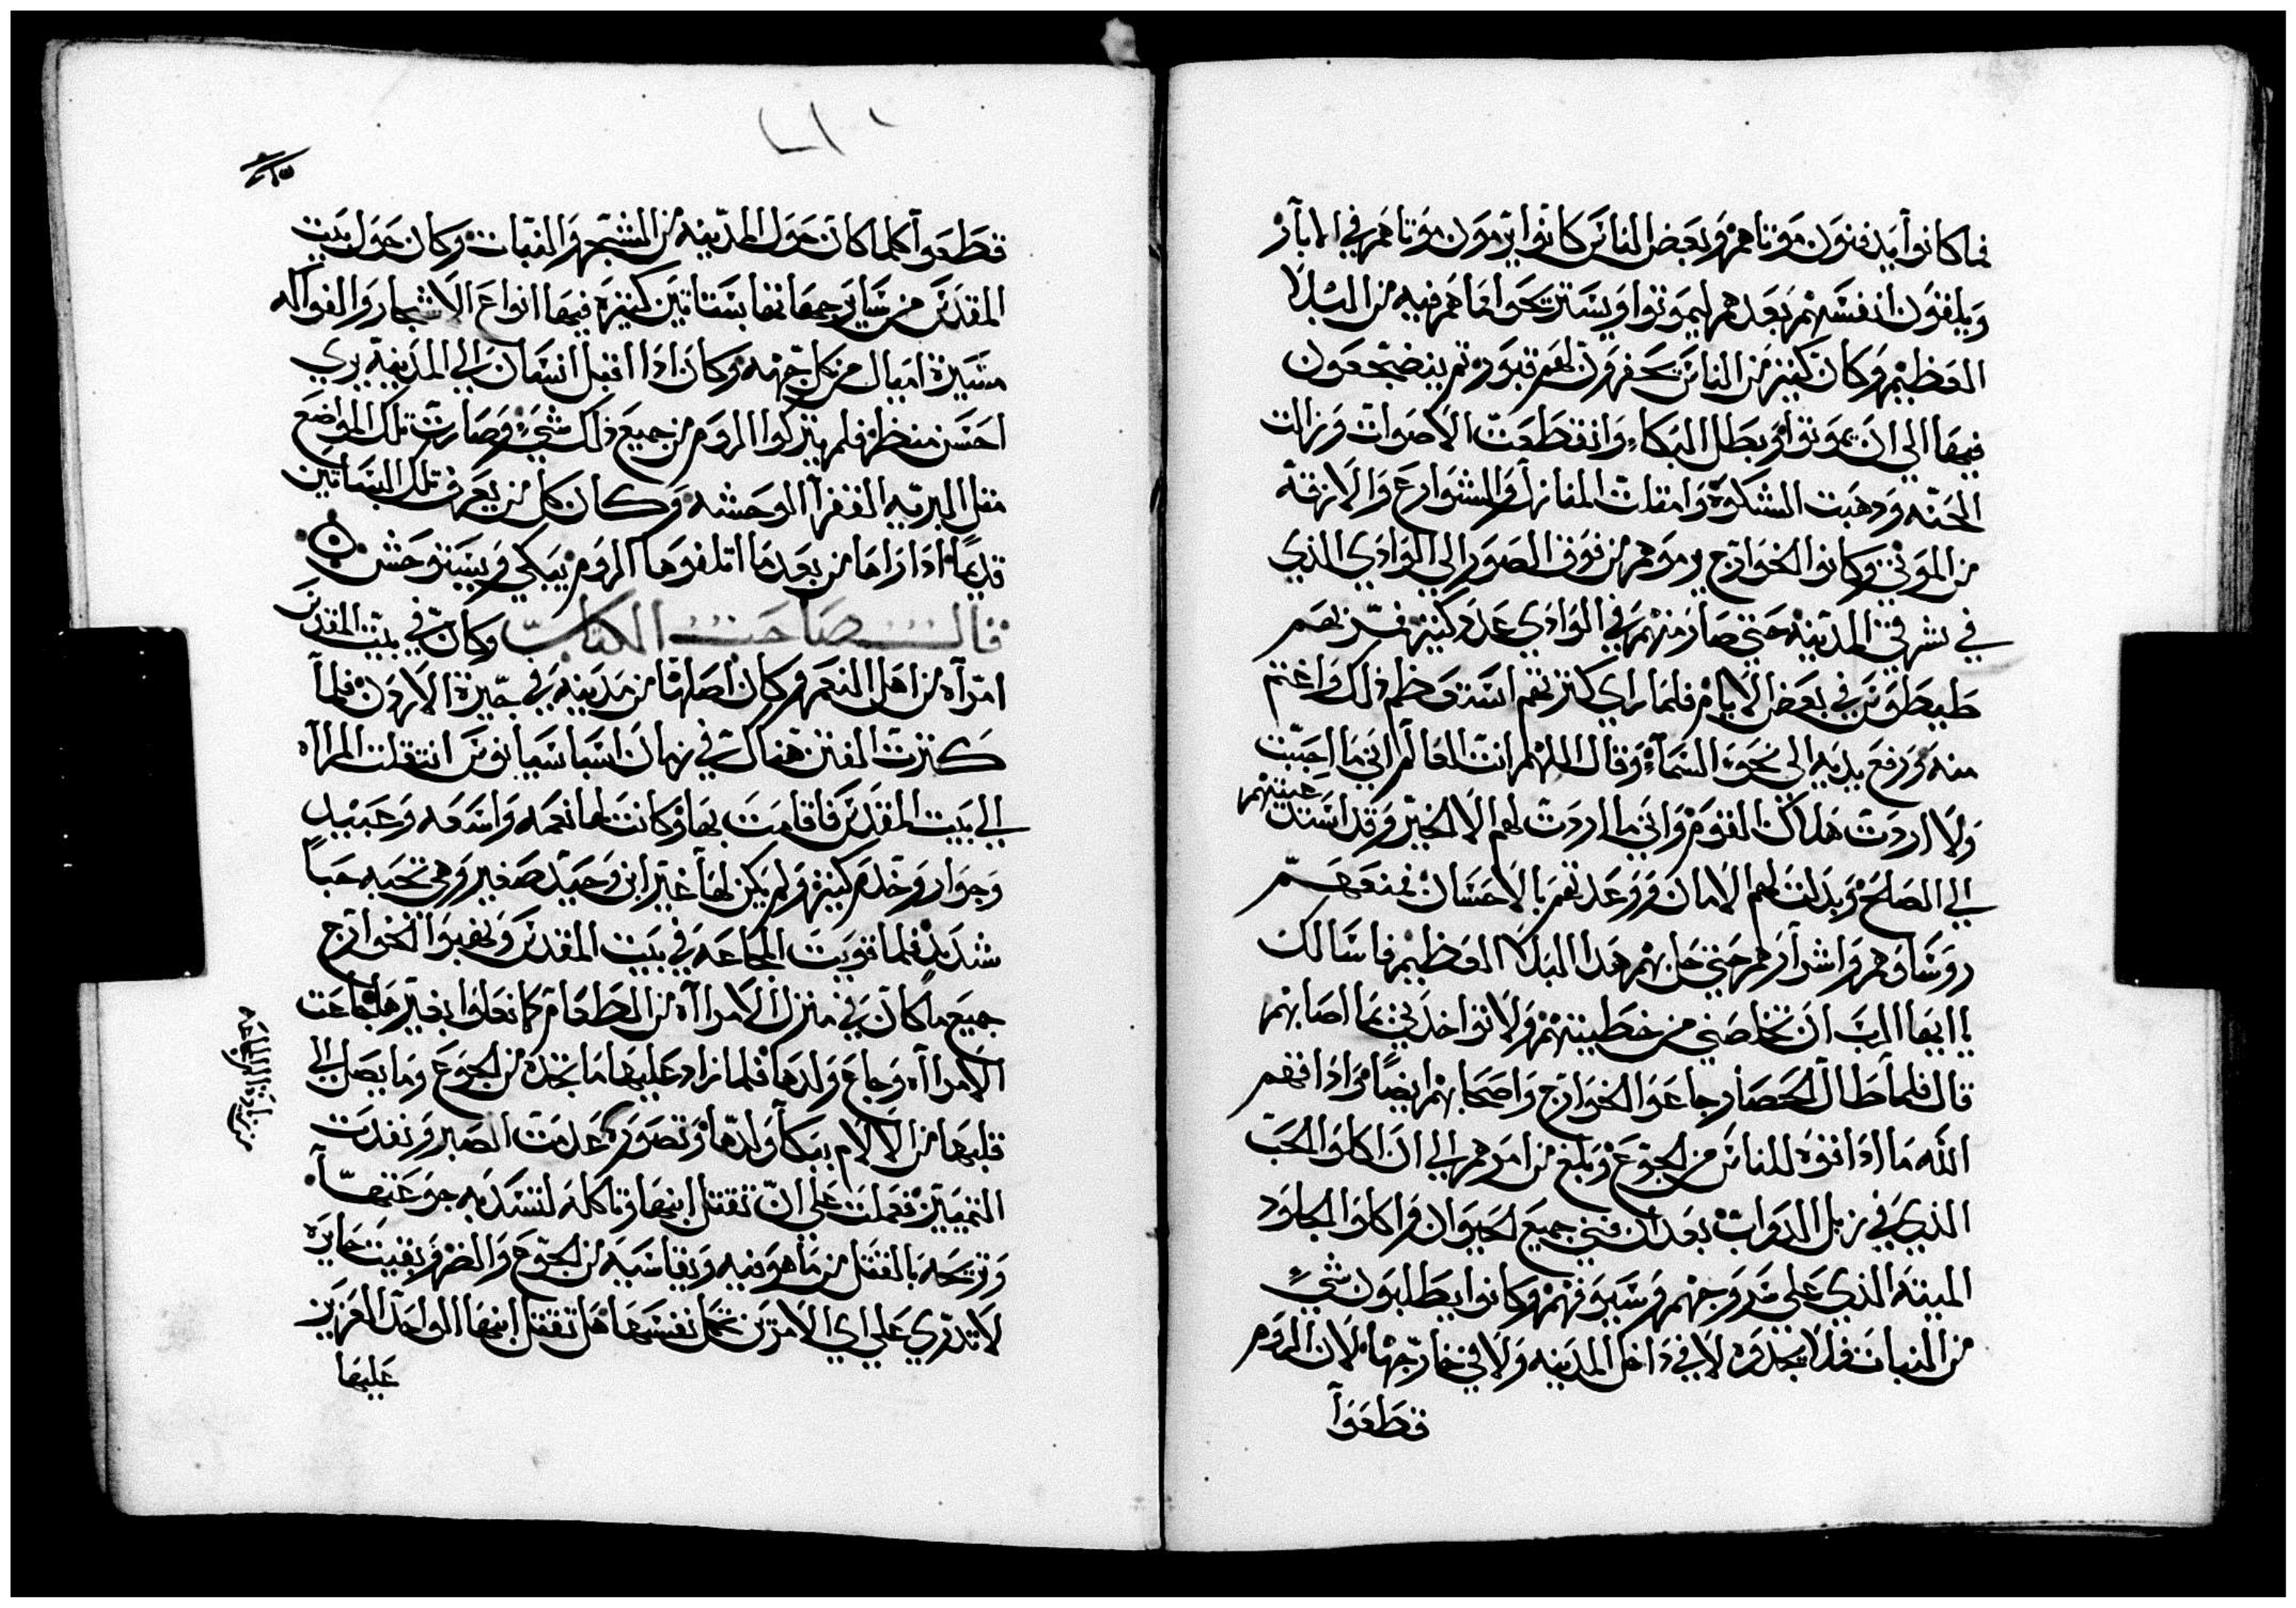 فما كانوا يدفنون موتاهم وبعض الناس كانوا يرمون موتاهم في الابآر
ويلقون انفسهم بعدهم ليموتوا ويستريحوا مما هم فيه من البلا
العظيم وكان كثير من الناس يحفرون لهم قبور ثم ينضجعون
فيها الي ان يموتوا وبطل البكاء وانقطعت الاصوات وزالت
الحنه وذهبت الشكوة وامتلت المنازل والشوارع والازقة
من الموتى وكانوا الخوارج يرموهم من فوق الصور الي الوادي الذي
في شرقي المدينه حتي صار منهم في الوادي عدد كثير فمر بهم
طيطوس في بعض الايام فلما راي كثرتهم استعظم ذلك واغتم
منه ورفع يديه الى نحو السماء وقال اللهم انت العالم اني ما احببت
ولا اردت هلاك القوم واني ما اردت لهم الا الخير وقد استدعيتهم
الي الصلح وبدلت لهم الامان ووعدتهم بالاحسان فمنعهم
روساوهم واشرارهم حتي حل بهم هدا البلا العظيم فاسالك
يا ايها الرب ان تخلصني من خطيتهم ولا تواخدني بما اصابهم
قال فلما طال الحصار جاعوا الخوارج واصحابهم ايضا وادافهم
الله ما ادافوه للناس من الجوع وبلغ من امرهم الي ان اكلوا الحب
الذي في زبل الدواب بعد ان فني جميع الحيوان واكلوا الجلود
الميته الذي علي سروجهم وسيوفهم وكانوا يطلبون شيء
من النبات فلا يجدوه لا في داخل المدينه ولا في خارجها لان الروم
قطعوا
قطعوا كلما كان حول المدينه من الشجر والنبات وكان حول بيت
المقدس من ساير جهاتها بساتين كثيرة فيها انواع الاشجار والفواكه
مسيرة اميال من كل جهه وكان ادا اقبل انسان الي المدينه يري
احسن منظر فلم يتركوا الروم من جميع ذلك شيء وصارت تلك المواضع
مثل البريه القفرا الوحشه وكان كل من يعرف تلك البساتين
قديما ادا راها من بعد ما اتلفوها الروم يبكي ويستوحش
قال صاحب الكتاب وكان في بيت المقدس
امرآه من اهل النعم وكان اصلها من مدينه في جيرة الاردن فلما
كثرت الفتن هناك في زمان اسباسيانوس انتقلت المراه
الي بيت المقدس فاقامت بها وكانت لها نعمه واسعه وعبيد
وجوار وخدم كثيرة ولم يكن لها غير ابن وحيد صغير وهي تحبه حبا
شديد فلما قويت المجاعه في بيت المقدس ونهبوا الخوارج
جميع ما كان في منزل الامراه من الطعام كما فعلوا بغيرها جاعت
الامراه وجاع ولدها فلما زاد عليها ما تجده من الجوع وما يصل الي
قلبها من الالام ببكآ ولدها وتصوره عدمت الصبر ونفدت
التمييز فعملت علي ان تقتل ابنها وتاكله لتسد به جوعتها
وتريحه بالقتل من ما هو فيه ويقاسيه من الجوع والضر وبقيت حايره
لا تدري علي اي الامرين تحمل نفسها هل تقتل ابنها الواحد العزيز
عليها